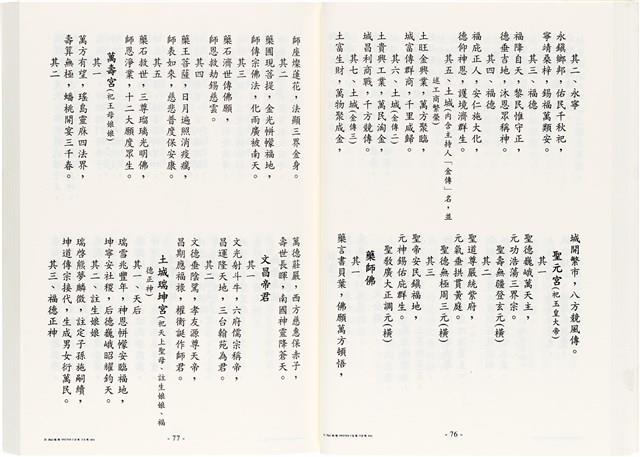 其二、永寧
永鎮鄉邦，佑民千秋祀，
寧靖桑梓，錫福萬類安。
其三、福德
福降自天，黎民惟守正，
德垂吉地，沐恩眾稱神。
其四、福德
福庇正人，安仁施大化，
德仰神恩，護境濟群生。
其五、土城(內含主持人「金傳」名，並
述工商繁榮)
土旺金興業，萬方聚臨，
城富傳群商，千里咸歸。
其六、土城(金傳二)
土貴興工業，萬民淘金，
城昌利商戰，千方競傳。
其七、土城(金傳三)
土富生財，萬物聚成金，
城開繁市，八方競風傳。
聖元宮(祀玉皇大帝)
其一
聖德巍峨萬天主，
元功浩蕩三界宗。
其二
聖壽無疆登玄元(橫)
聖道尊嚴統紫府，
元氣垂拱貫黃庭。
聖德無極周三元(橫)
其三
聖帝安民鎮福地，
元神錫佑庇群生。
聖教廣大正調元(橫)
藥師佛
其一
藥言書貝葉，佛願萬方頓悟，
- 76 -
師座燦蓮花，法顯三界金身。
其二
藥國現菩提，金光帡幪福地，
師傳宗佛法，化雨廣被南天。
其三
藥石濟世傳佛願，
師恩救劫錫慈雲。
其四
藥王菩薩，日月遍照消疫癘，
師表如來，慈悲普度保安康。
其五
藥石救世，三尊瑠璃光明佛，
師恩淨業，十二大願度眾生。
萬壽宮(祀王母娘娘)
其一
萬方有望，瑤島靈麻四法界，
壽算無極，蟠桃開宴三千春。
其二
萬德莊嚴，西方慈惠保赤子，
壽世長暉，南國神靈降蒼天。
文昌帝君
其一
文光射斗牛，六府儒宗稱帝，
昌運隆天地，三台翰苑為君。
其二
文德垂陰騭，孝友源尊天帝，
昌期應福祿，權衡誕作師君。
土城瑞坤宮(祀天上聖母、註生娘娘、福
德正神)
其一、天后
瑞雪兆豐年，神恩帡幪安臨福地，
坤寧安社稷，后德巍峨昭耀鈞天。
其二、註生娘娘
瑞啓熊夢麟徵，註定子孫施嗣續，
坤道傳宗接代，生成男女衍萬民。
其三、福德正神
- 77 -